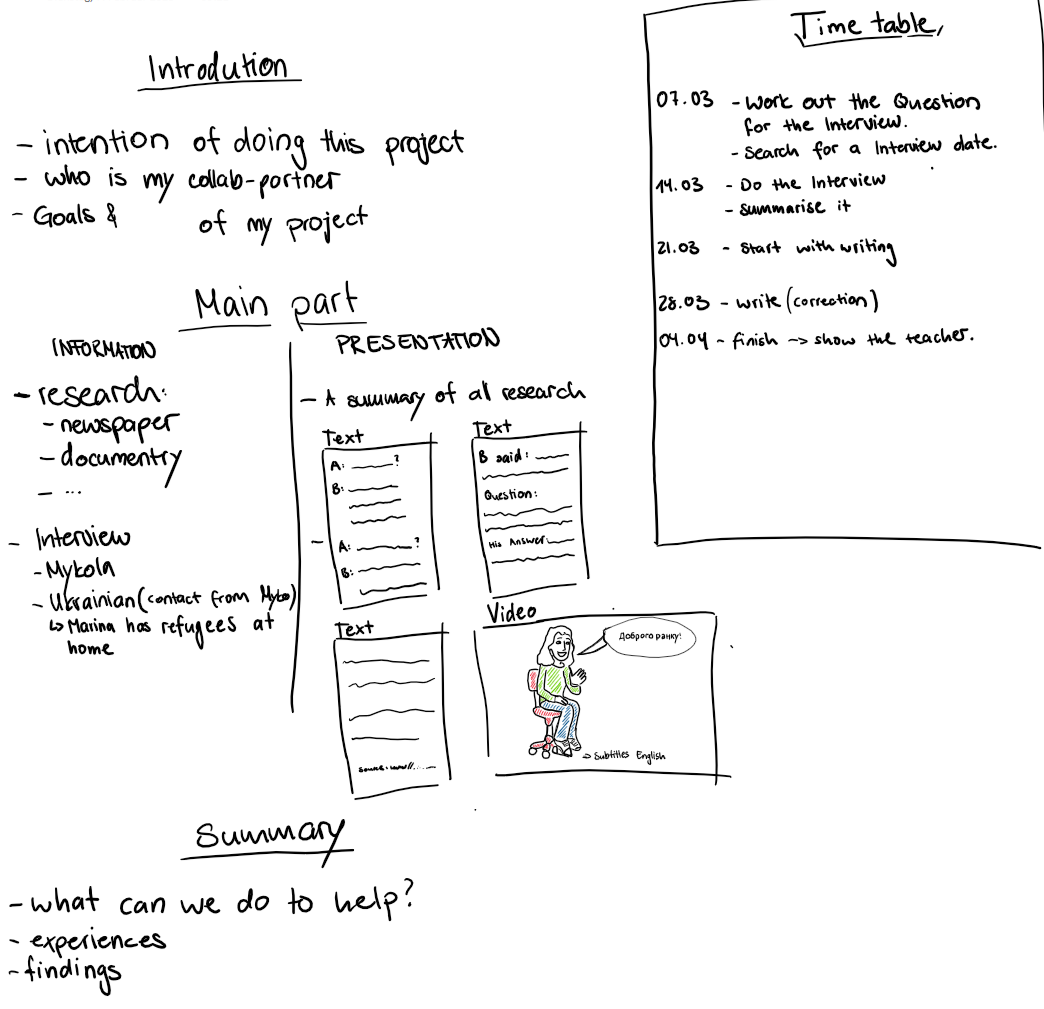 Introdution
- intention of doing this project
- who is my collab-partner
- Goals & of my project
Main part
INFORMATION
- research:
- newspaper
- documentry
- ...
- Interview
- Mykola
- Ukrainian (contact from Myko)
↳ Marina has refugees at
home
PRESENTATION
- A summary of all research
Text
A: ?
B:
A: ?
B:
Text
B said:
Question:
His Answer:
Text
Video
Доброго ранку!
→ Subtitles English
Summary
- what can we do to help?
- experiences
- findings
Time table
07.03 - Work out the Question
for the Interview.
- Search for a Interview date.
14.03 - Do the Interview
- summarise it
21.03 - Start with writing
28.03 - write (correction)
04.04 - finish -> show the teacher.